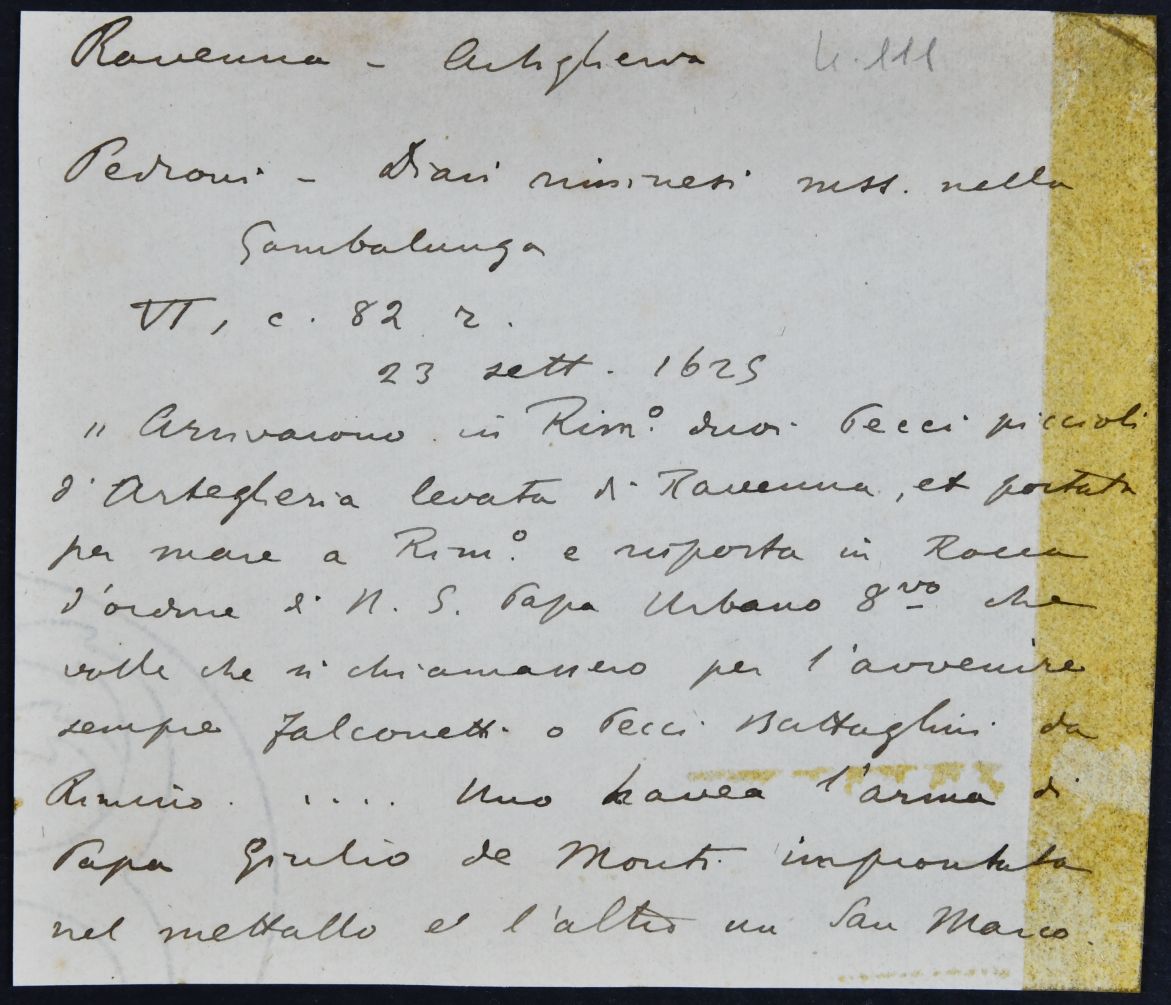 Ravenna - Artiglieria n. 111
Pedroni - Diari riminesi mss. nella
Gambalunga
VI, c. 82 r.
23 sett. 1625
" Arrivarono in Rim.º duoi Pecci piccioli
d'Artegheria levata di Ravenna, et portata
per mare a Rim.º e risposta in Rocca
d'ordine di N. S. Papa Urbano 8vo che
volle che si chiamassero per l'avvenire
sempre Falconetti o Pecci Battaglini da
Rimino. .... Uno havea l'arma di
Papa Giulio de Monti improntata
nel mettallo et l'altro un San Marco.